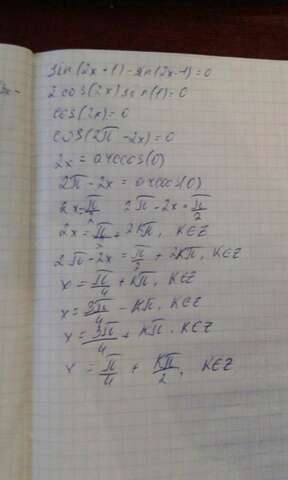 sin(2x+1)-sin(2x-1)=0
2cos(2x)sin(1)=0
cos(2x)=0
cos(2π-2x)=0
2x=arccos(0)
2π-2x=arccos(0)
2x=π/2 2π-2x=π/2
2x=π/2+2kπ, K∈Z
2π-2x=π/2+2kπ, K∈Z
x=π/4+kπ, K∈Z
x=3π/4-kπ, K∈Z
x=3π/4+kπ, K∈Z
x=π/4+kπ/2, K∈Z